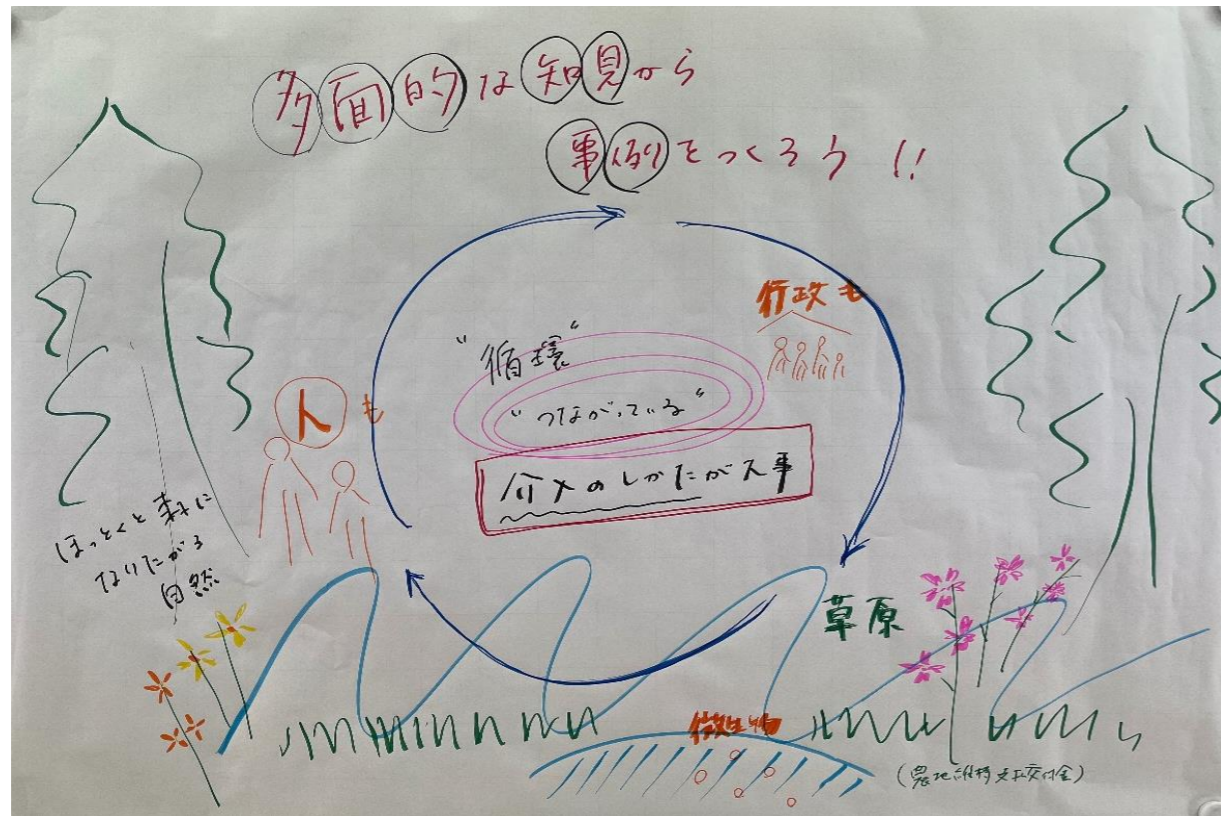 多面的な知見から
事例をつくろう!!
行政も
"循環"
人も
"つながっている"
介入のしかたが大事
ほっとくと森に
なりたがる
自然
草原
微生物
(農地維持支払交付金)